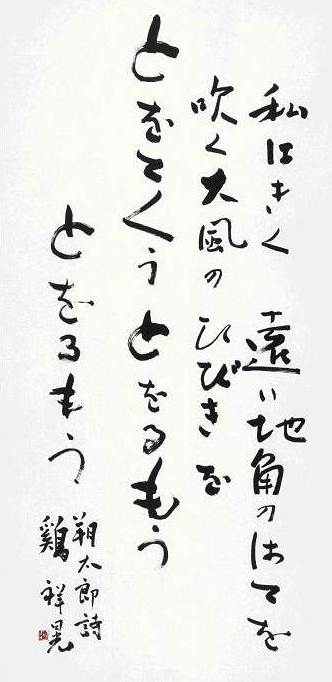 私はきく 遠い地角のはてを
吹く大風のひびきを
とをてくう とをるもう
とをるもう
朔太郎詩
鶏 祥晃